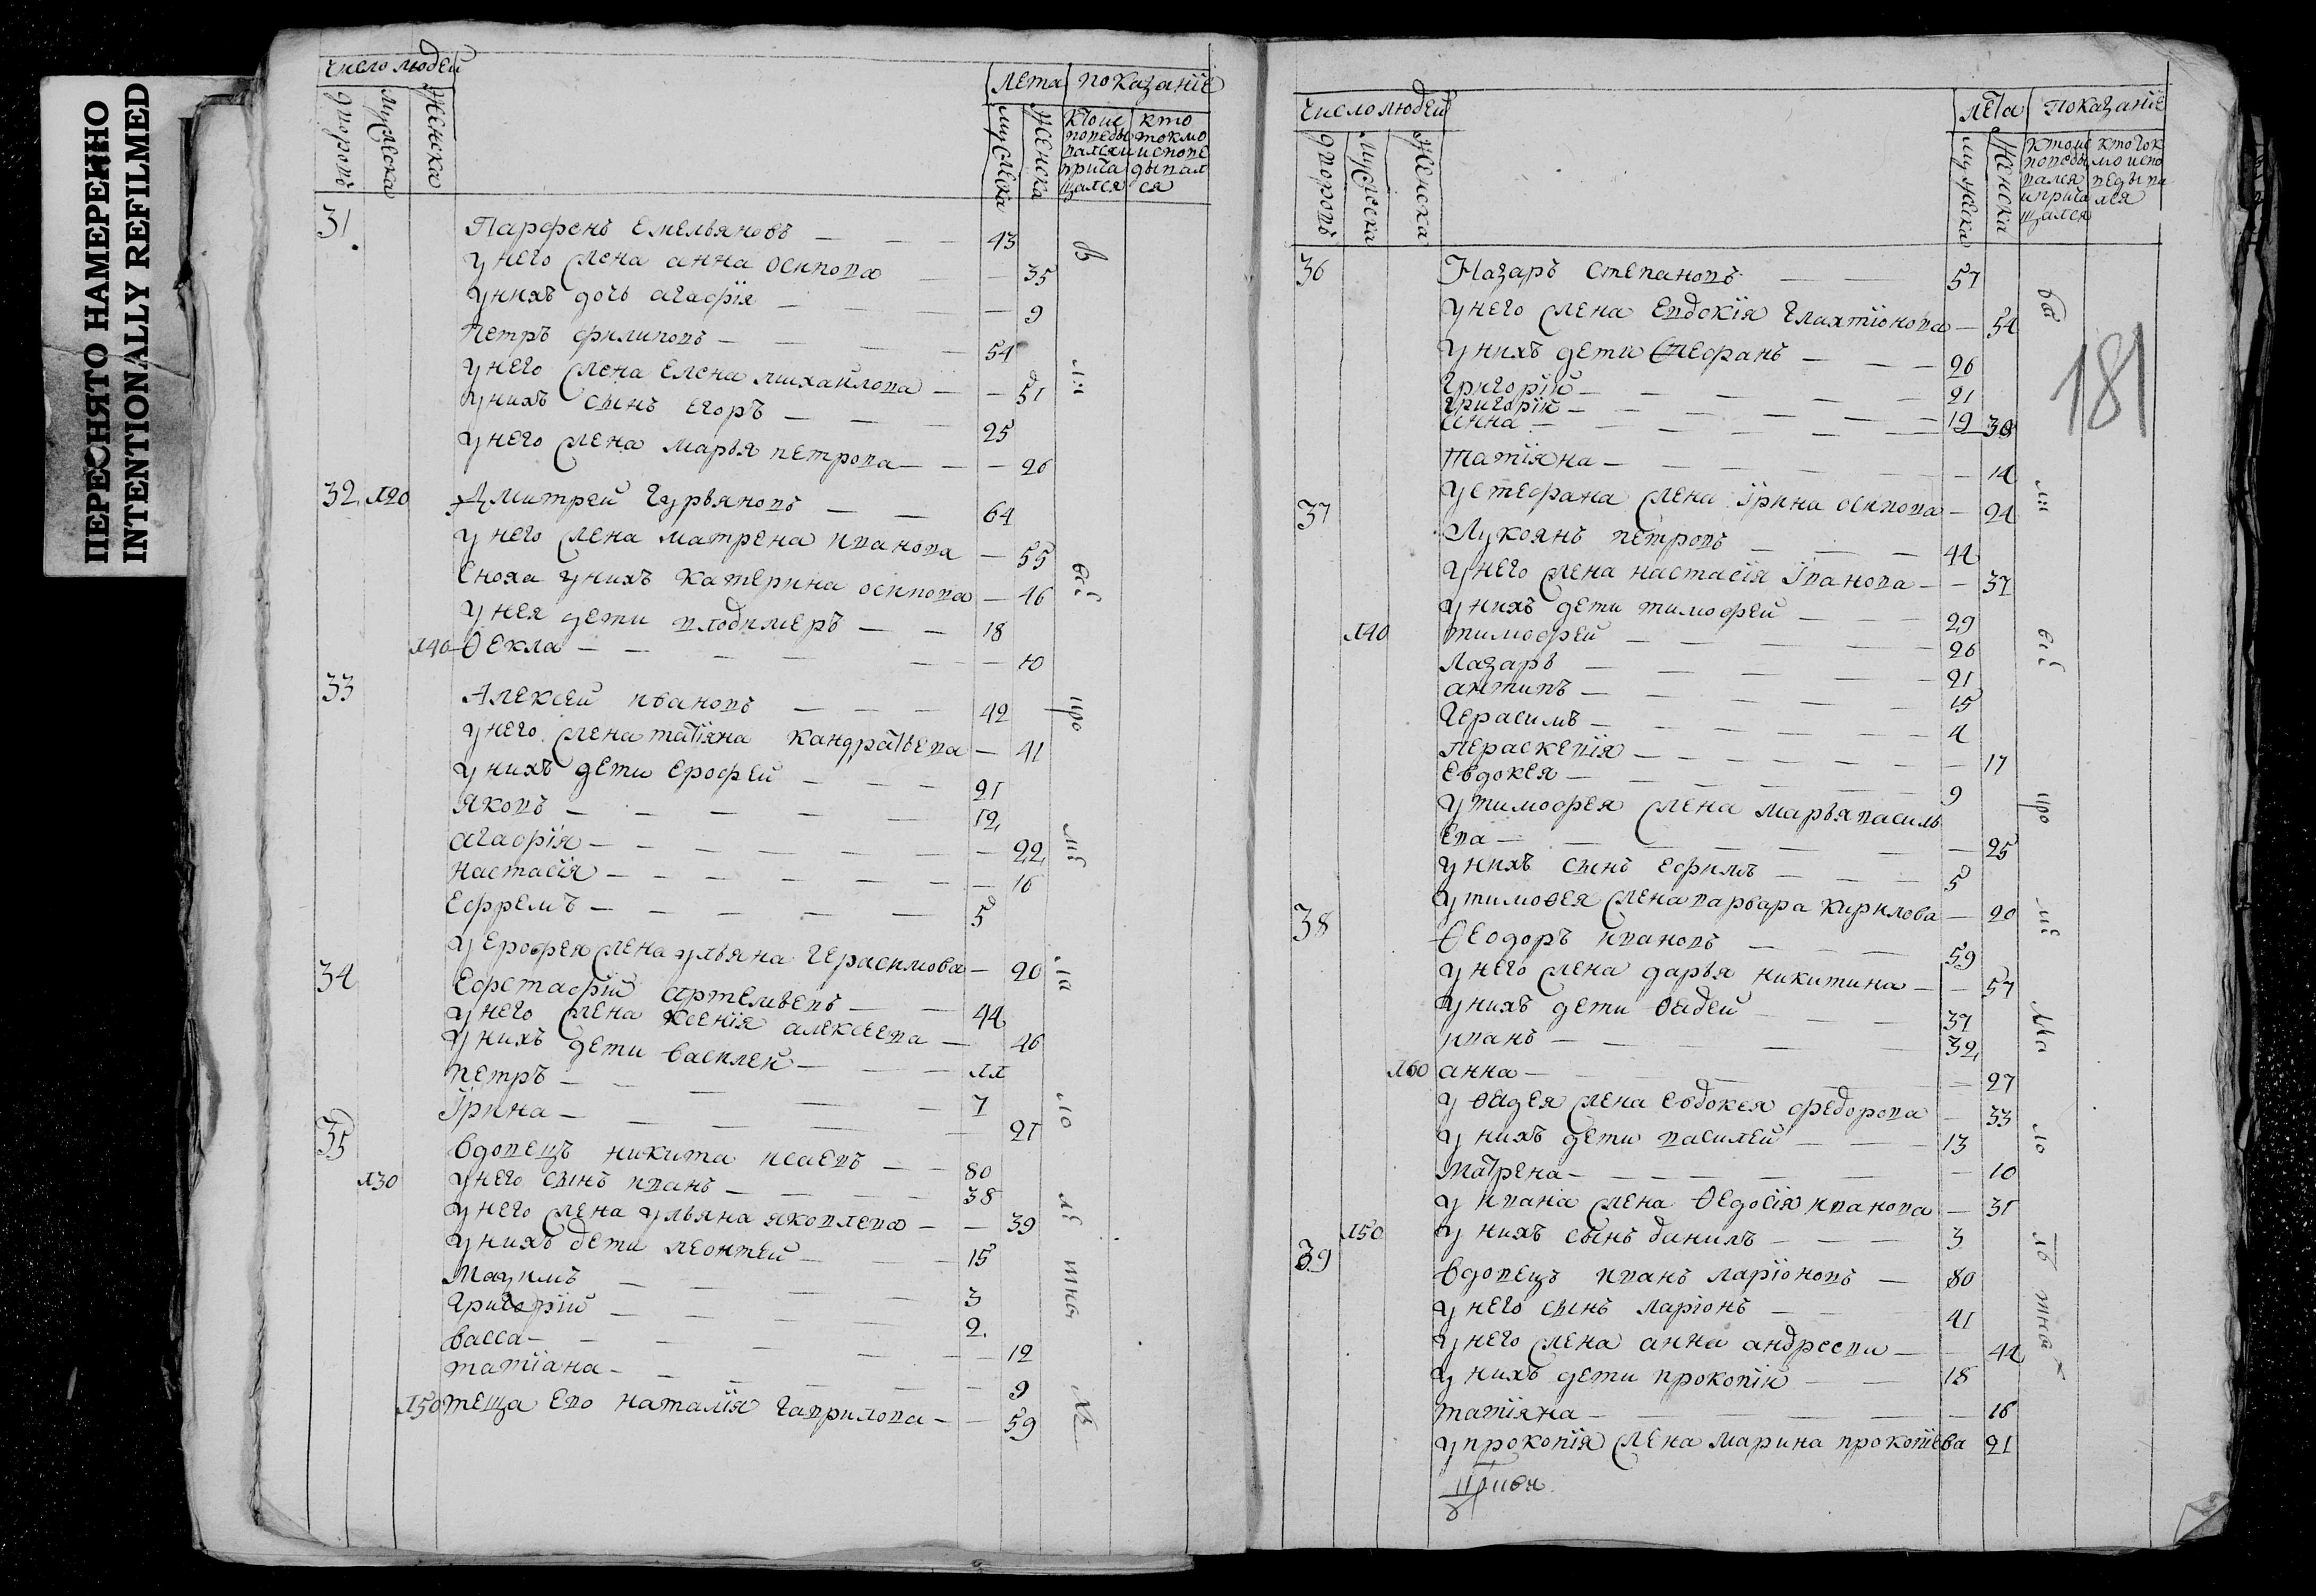 ПЕРЕСНЯТО НАМЕРЕННО
INTENTIONALLY REFILMED
число людей
лета показание
дворовъ мужеска женска
мужеска женска
кто исповедывался и причащался
кто токмо исповедывался
31 Парфенъ Емельяновъ — 43
у него жена анна осипова — 35
у нихъ дочь агафія — 9
петръ филиповъ — 54
у него жена Елена михайлова — 51
у нихъ сынъ Егоръ — 25
у него жена марья петрова — 26
32 120 Дмитрей Гурьяновъ — 64
у него жена матрена иванова — 55
сноха у нихъ катерина осипова — 46
у нея дети влодимеръ — 18
140 Ѳекла — 10
33 Алексей ивановъ — 42
у него жена татіяна кандратьева — 41
у нихъ дети ерофей — 21
яковъ — 12
агафія — 22
настасія — 16
Ефремъ — 5
у Ерофея жена ульяна Герасимова — 20
34 Ефстафій артемьевъ — 44
у него жена ксенія алексеева — 46
у нихъ дети василей — 11
петръ — 7
Їрина — 21
35 вдовецъ никита исаевъ — 80
130 у него сынъ иванъ — 38
у него жена ульяна яковлева — 39
у нихъ дети леонтей — 15
Маѯимъ — 3
Григорій — 2
васса — 12
татіана — 9
150 теща Ево наталія гаврилова — 59
В ли всѣ про ла ло лѣ тны
181
число людей
лета показаніе
дворовъ мужеска женска
мужеска женска
кто исповедывался и причащался
кто токмо исповедывался
36 Назаръ степановъ — 57
у него жена Евдокія Глахтіонова — 54
у нихъ дети стефанъ — 26
Григорій — 21
Григорій — 19
анна — 30
татіяна — 14
у стефана жена Їрина осипова — 24
37 Лукоянъ петровъ — 44
у него жена настасія Їванова — 37
у нихъ дети тимофей — 29
140 тимофей — 26
лазарь — 21
антипъ — 15
Герасимъ — 4
параскевія — 17
Евдокея — 9
у тимофея жена марья василь
ева — 25
у нихъ сынъ ефимъ — 5
у тимоѳея жена варвара кирилова — 20
38 Ѳеодоръ ивановъ — 59
у него жена дарья никитина — 57
у нихъ дети Ѳадей — 37
иванъ — 32
160 анна — 27
у Ѳадея жена евдокея федорова — 33
у нихъ дети василей — 13
матрена — 10
у ивана жена Ѳедосія иванова — 31
150 у нихъ сынъ данилъ — 3
39 вдовецъ иванъ ларіоновъ — 80
у него сынъ ларіонъ — 41
у него жена анна андреева — 44
у нихъ дети прокопій — 18
татіяна — 16
у прокопія жена марина прокопіева 21